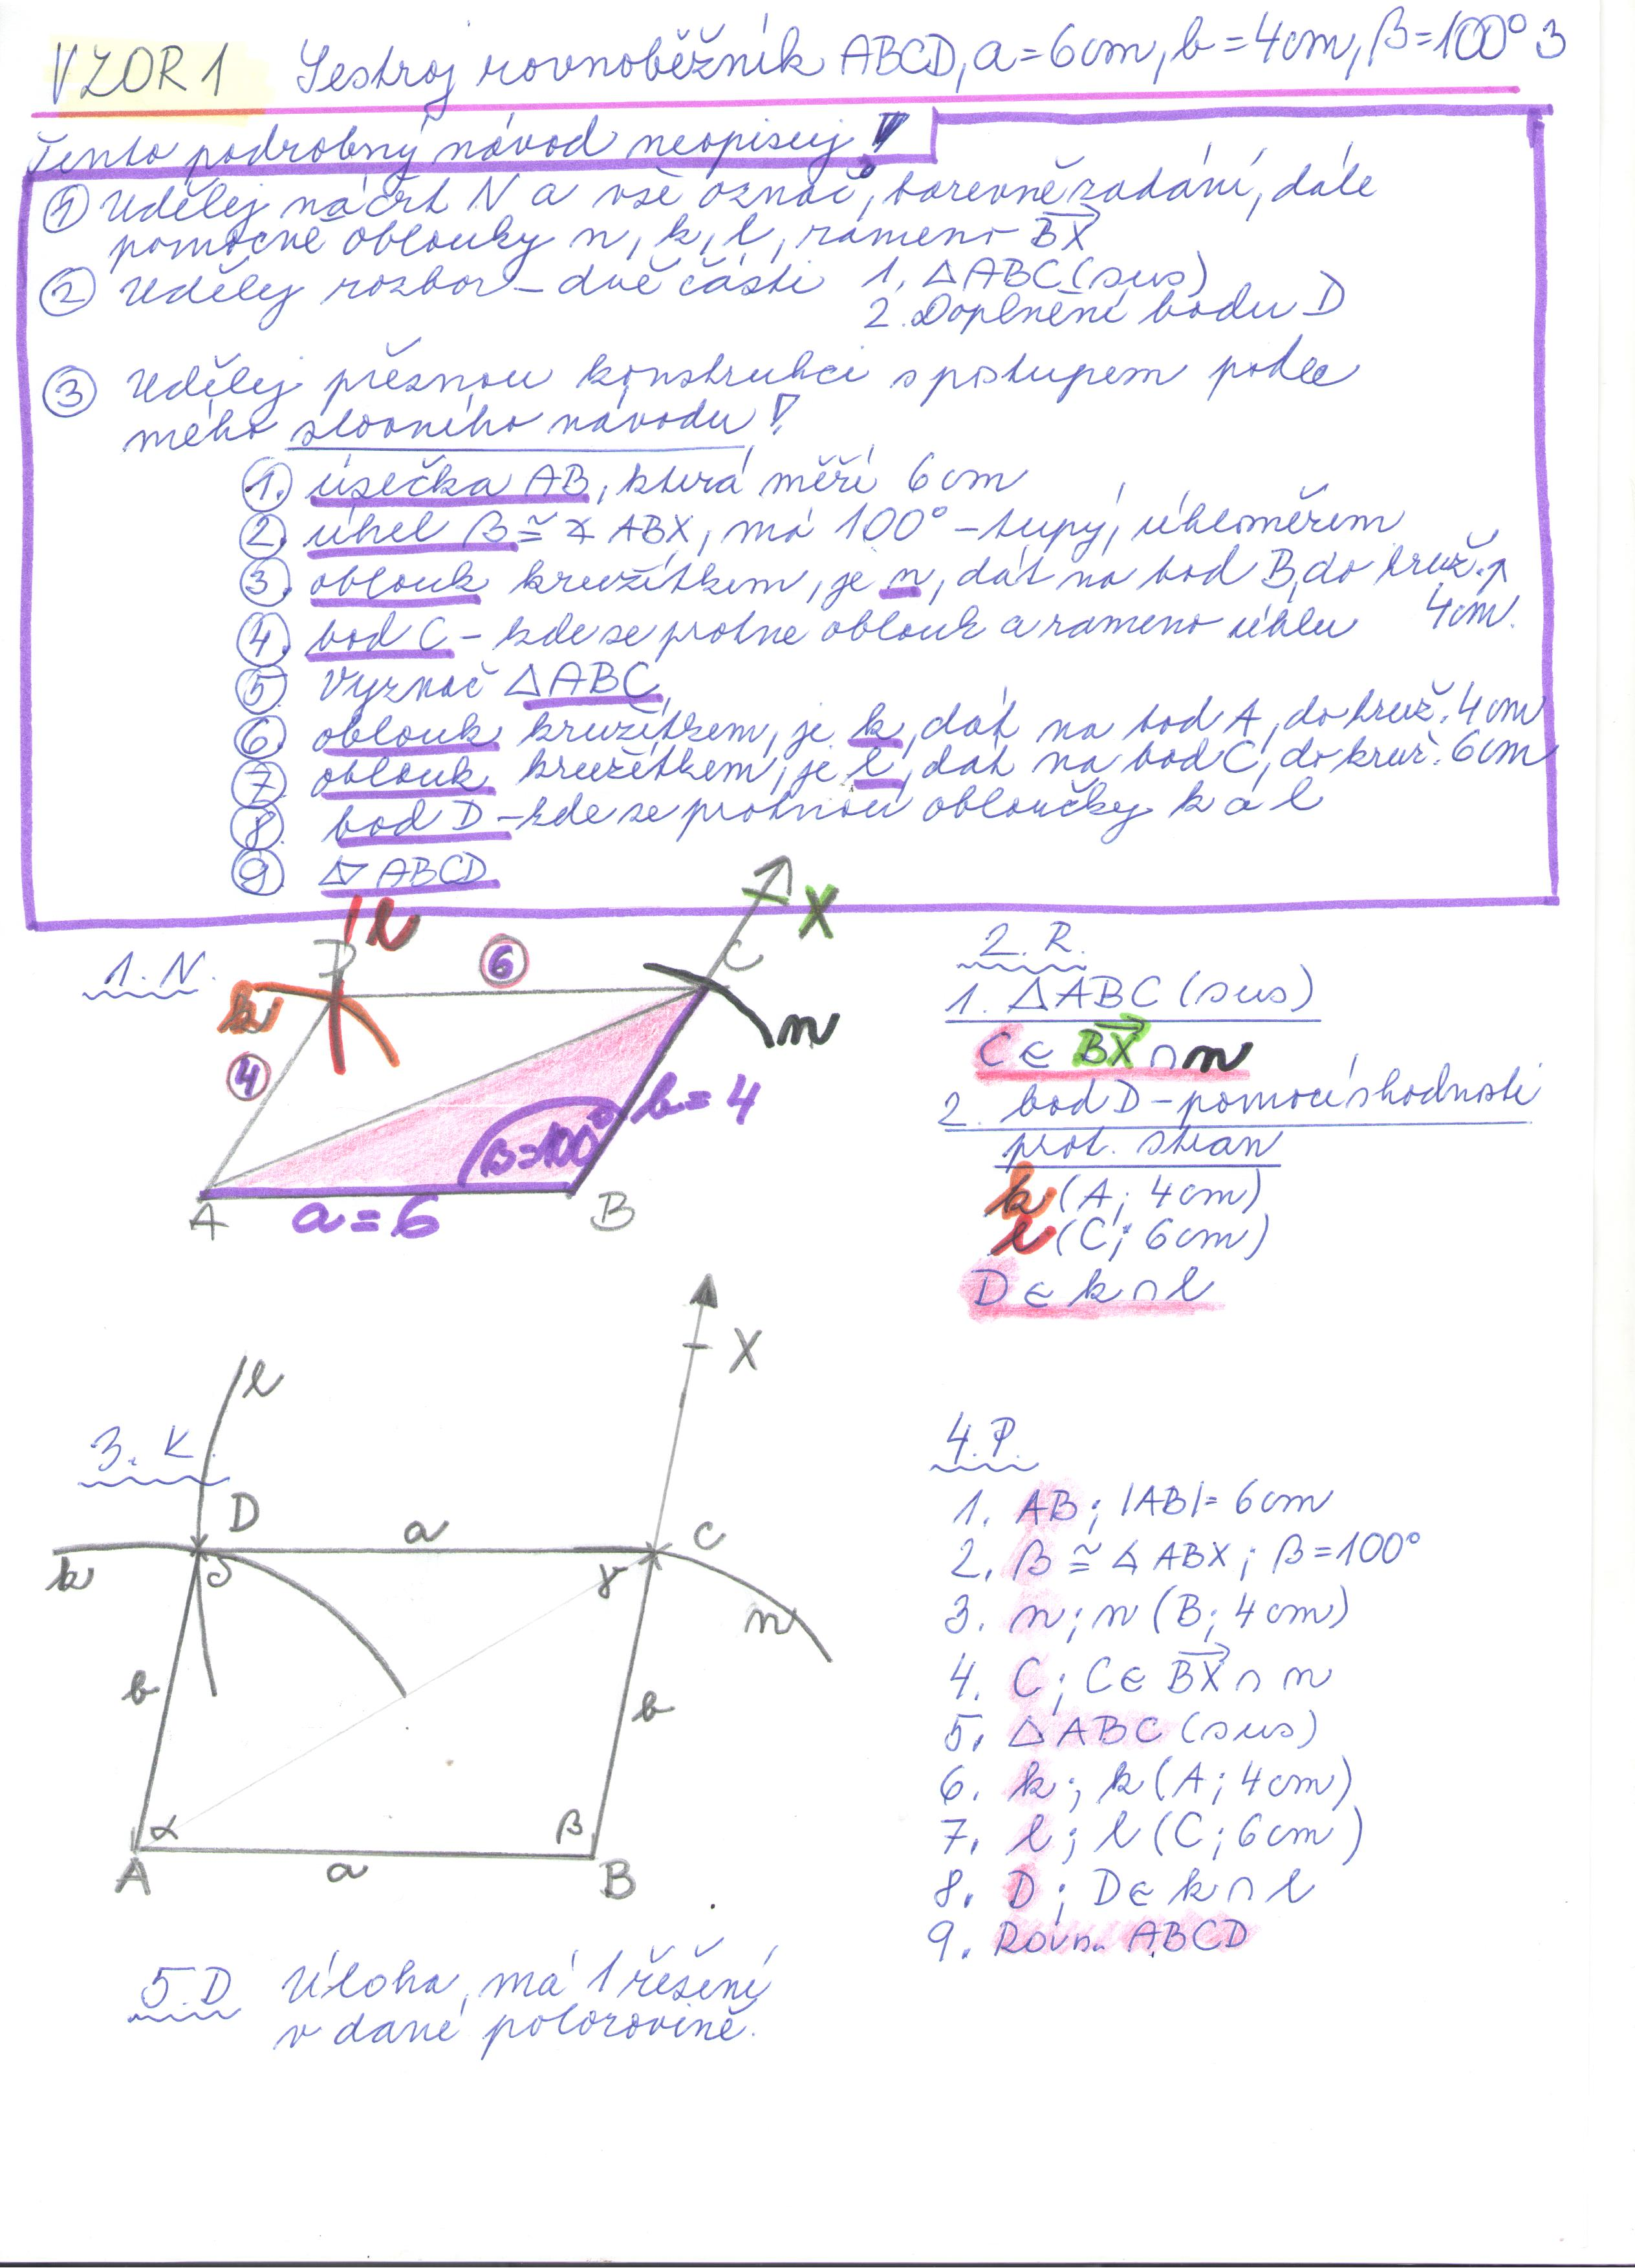 VZOR 1 Sestroj rovnoběžník ABCD, a=6cm, b=4cm, β=100° 3
Tento podrobný návod neopisuj!
① Udělej náčrt N a vše označ, barevně zadání, dále
pomocné oblouky n, k, l, rameno BX
② Udělej rozbor – dvě části 1. △ABC (sus)
2. Doplnění bodu D
③ Udělej přesnou konstrukci s postupem podle
mého slovního návodu!
①. úsečka AB, která měří 6cm
②. úhel β ≅ ∢ ABX, má 100° – tupý, úhloměrem
③. oblouk kružítkem, je n, dát na bod B, do kruž.
4cm.
④. bod C – kde se protne oblouk a rameno úhlu
⑤. Vyznač △ABC
⑥. oblouk kružítkem, je k, dát na bod A, do kruž. 4cm
⑦. oblouk kružítkem, je l, dát na bod C, do kruž. 6cm
⑧. bod D – kde se protnou obloučky k a l
⑨. ▱ ABCD
1. N.
l
D
6
C
X
k
n
4
b=4
β=100°
A
a=6
B
2. R.
1. △ABC (sus)
C ∈ BX ∩ n
2. bod D – pomocí shodnosti
prot. stran
k (A; 4cm)
l (C; 6cm)
D ∈ k ∩ l
3. K.
l
X
D
a
C
k
δ
γ
n
b
b
α
β
A
a
B
4. P.
1. AB; |AB| = 6cm
2. β ≅ ∢ ABX; β=100°
3. n; n (B; 4cm)
4. C; C ∈ BX ∩ n
5. △ ABC (sus)
6. k; k (A; 4cm)
7. l; l (C; 6cm)
8. D; D ∈ k ∩ l
9. Rovn. ABCD
5. D Úloha má 1 řešení
v dané polorovině.